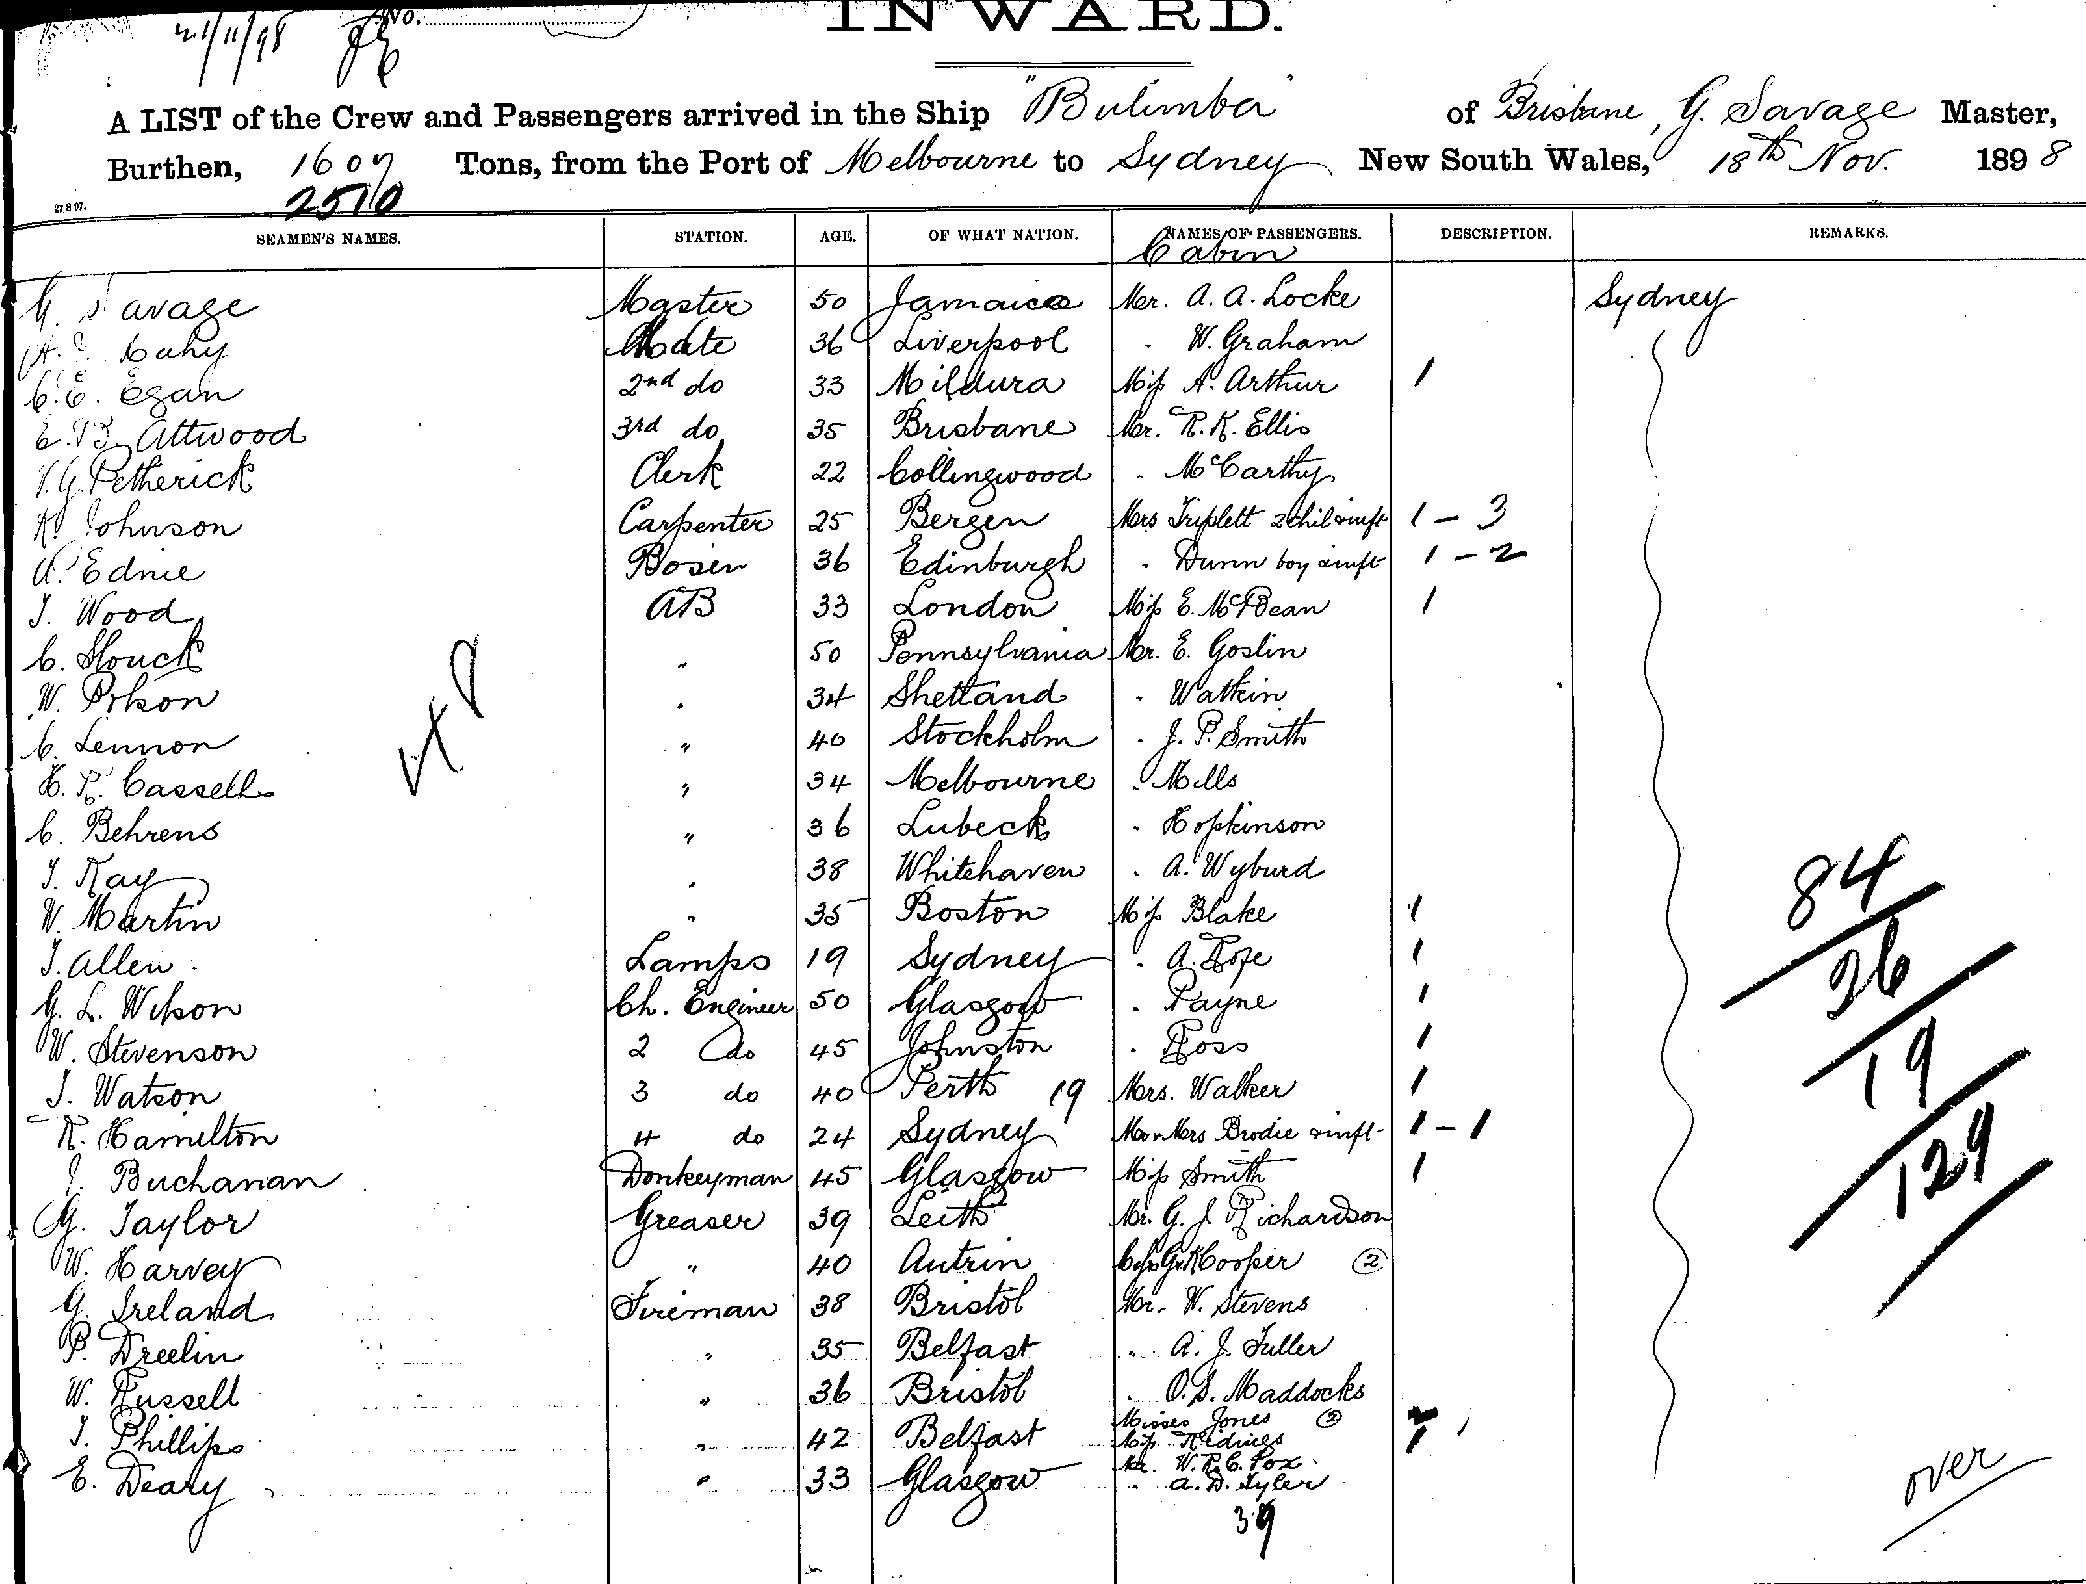 21/11/98 No.
INWARD.
A LIST of the Crew and Passengers arrived in the Ship "Bulimba" of Brisbane, G. Savage Master,
Burthen, 1607 Tons, from the Port of Melbourne to Sydney New South Wales, 18th Nov. 1898
27.8.97. 2510
SEAMEN'S NAMES. STATION. AGE. OF WHAT NATION. NAMES OF PASSENGERS. DESCRIPTION. REMARKS.
Cabin
G. Savage Master 50 Jamaica Mr. A. A. Locke Sydney
Cahy Mate 36 Liverpool " W. Graham
C. E. Egan 2nd do 33 Mildura Miss A. Arthur 1
E. B. Attwood 3rd do 35 Brisbane Mr. R. K. Ellis
V. G. Petherick Clerk 22 Collingwood " McCarthy
Johnson Carpenter 25 Bergen Mrs Triplett 2 chil & inft 1 - 3
A. Ednie Bosen 36 Edinburgh " Dunn boy & inft 1 - 2
J. Wood AB 33 London Miss E. McBean 1
C. Houck " 50 Pennsylvania Mr. E. Goslin
W. Polson " 34 Shetland " Watkin
C. Lennon " 40 Stockholm " J. P. Smith
H. R. Cassells " 34 Melbourne " Mills
C. Behrens " 36 Lubeck " Hopkinson
J. Kay " 38 Whitehaven " A. Wyburd
W. Martin " 35 Boston Miss Blake 1
J. Allen Lamps 19 Sydney " A. Hope 1
G. L. Wilson Ch. Engineer 50 Glasgow " Payne 1
W. Stevenson 2 do 45 Johnston " Ross 1
J. Watson 3 do 40 Perth 19 Mrs. Walker 1
R. Hamilton 4 do 24 Sydney Mr & Mrs Brodie & inft 1 - 1
J. Buchanan Donkeyman 45 Glasgow Miss Smith 1
G. Taylor Greaser 39 Leith Mr. G. J. Richardson
W. Harvey " 40 Autrin Cooper 2
G. Ireland Fireman 38 Bristol Mr. W. Stevens
P. Dreelin " 35 Belfast " A. J. Fuller
W. Russell " 36 Bristol " O. S. Maddocks
J. Phillips " 42 Belfast Misses Jones 2
Miss Ridings 1
E. Deary " 33 Glasgow Mr. W. R. C. Fox
" A. D. Tyler
39
48
84
26
19
129
over